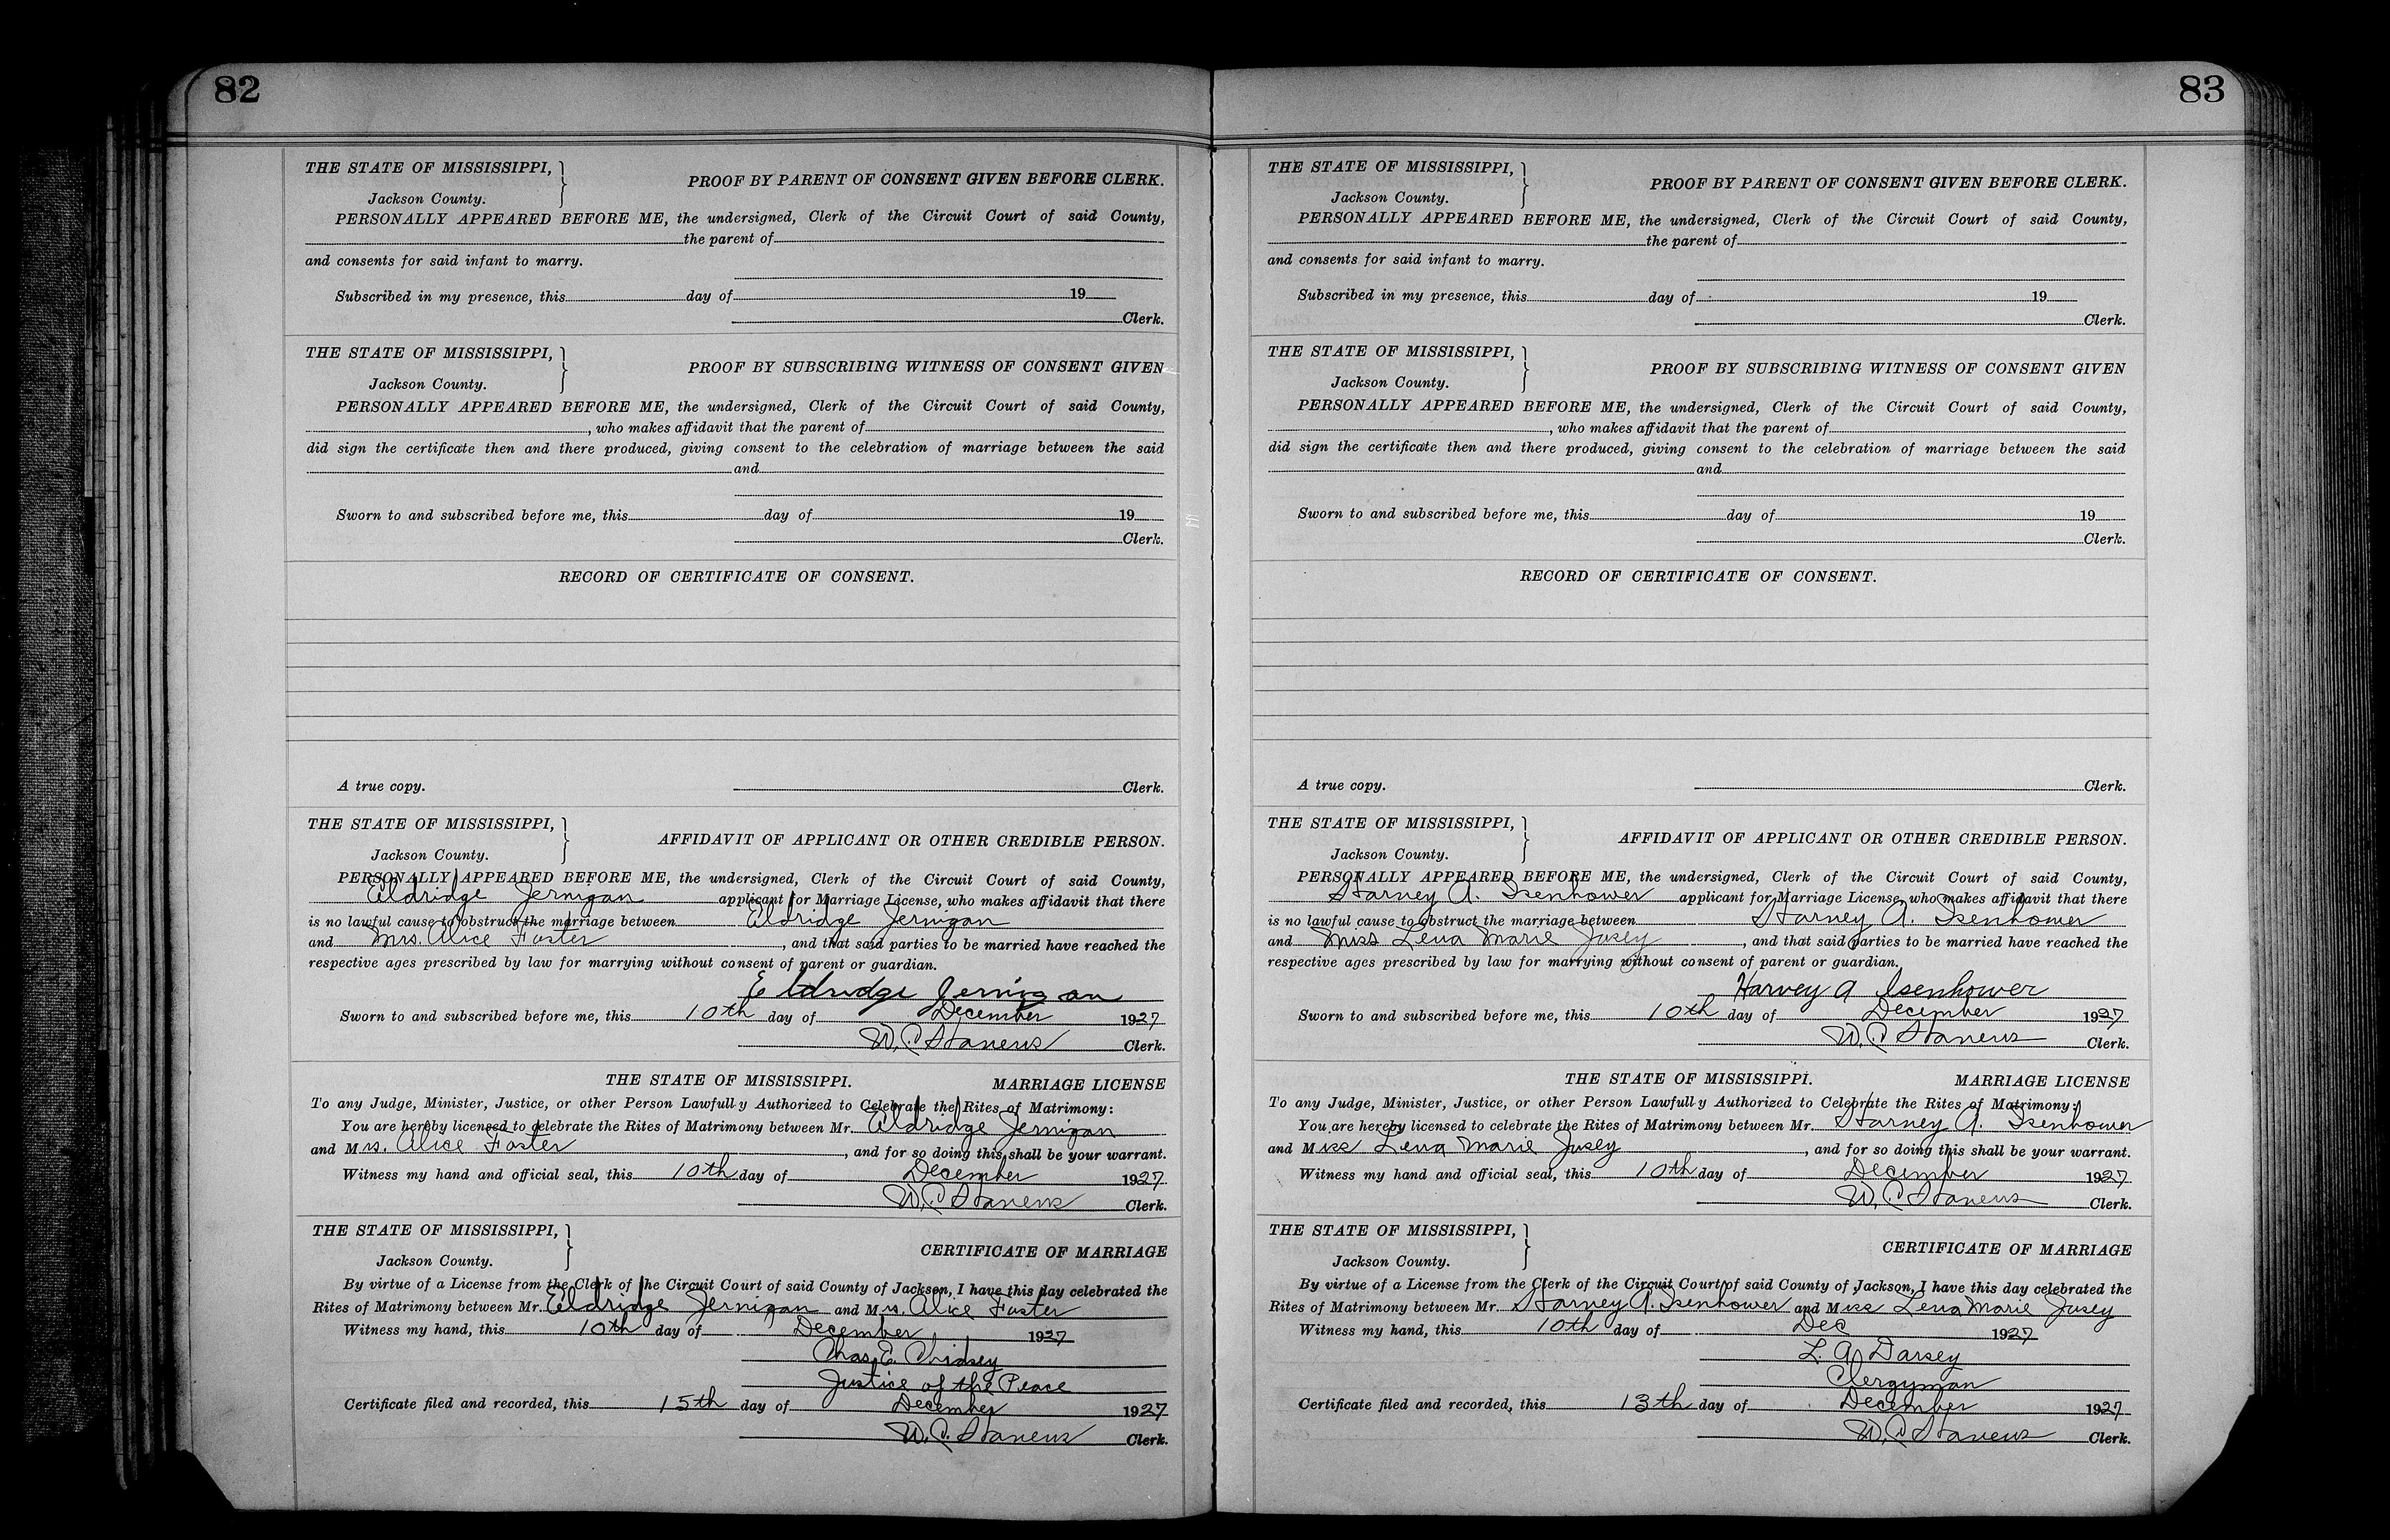 82
THE STATE OF MISSISSIPPI,
Jackson County.
PROOF BY PARENT OF CONSENT GIVEN BEFORE CLERK.
PERSONALLY APPEARED BEFORE ME, the undersigned, Clerk of the Circuit Court of said County,
the parent of
and consents for said infant to marry.
Subscribed in my presence, this day of 19
Clerk.
THE STATE OF MISSISSIPPI,
Jackson County.
PROOF BY SUBSCRIBING WITNESS OF CONSENT GIVEN
PERSONALLY APPEARED BEFORE ME, the undersigned, Clerk of the Circuit Court of said County,
, who makes affidavit that the parent of
did sign the certificate then and there produced, giving consent to the celebration of marriage between the said
and
Sworn to and subscribed before me, this day of 19
Clerk.
RECORD OF CERTIFICATE OF CONSENT.
A true copy. Clerk.
THE STATE OF MISSISSIPPI,
Jackson County.
AFFIDAVIT OF APPLICANT OR OTHER CREDIBLE PERSON.
PERSONALLY APPEARED BEFORE ME, the undersigned, Clerk of the Circuit Court of said County,
Eldridge Jernigan applicant for Marriage License, who makes affidavit that there
is no lawful cause to obstruct the marriage between Eldridge Jernigan
and Mrs. Alice Foster , and that said parties to be married have reached the
respective ages prescribed by law for marrying without consent of parent or guardian.
Eldridge Jernigan
Sworn to and subscribed before me, this 10th day of December 1927
W. C. Havens Clerk.
THE STATE OF MISSISSIPPI. MARRIAGE LICENSE
To any Judge, Minister, Justice, or other Person Lawfully Authorized to Celebrate the Rites of Matrimony:
You are hereby licensed to celebrate the Rites of Matrimony between Mr. Eldridge Jernigan
and Mrs. Alice Foster , and for so doing this shall be your warrant.
Witness my hand and official seal, this 10th day of December 1927
W. C. Havens Clerk.
THE STATE OF MISSISSIPPI,
Jackson County.
CERTIFICATE OF MARRIAGE
By virtue of a License from the Clerk of the Circuit Court of said County of Jackson, I have this day celebrated the
Rites of Matrimony between Mr. Eldridge Jernigan and Mrs. Alice Foster
Witness my hand, this 10th day of December 1927
Chas. E. Chidsey
Justice of the Peace
Certificate filed and recorded, this 15th day of December 1927
W. C. Havens Clerk.
83
THE STATE OF MISSISSIPPI,
Jackson County.
PROOF BY PARENT OF CONSENT GIVEN BEFORE CLERK.
PERSONALLY APPEARED BEFORE ME, the undersigned, Clerk of the Circuit Court of said County,
the parent of
and consents for said infant to marry.
Subscribed in my presence, this day of 19
Clerk.
THE STATE OF MISSISSIPPI,
Jackson County.
PROOF BY SUBSCRIBING WITNESS OF CONSENT GIVEN
PERSONALLY APPEARED BEFORE ME, the undersigned, Clerk of the Circuit Court of said County,
, who makes affidavit that the parent of
did sign the certificate then and there produced, giving consent to the celebration of marriage between the said
and
Sworn to and subscribed before me, this day of 19
Clerk.
RECORD OF CERTIFICATE OF CONSENT.
A true copy. Clerk.
THE STATE OF MISSISSIPPI,
Jackson County.
AFFIDAVIT OF APPLICANT OR OTHER CREDIBLE PERSON.
PERSONALLY APPEARED BEFORE ME, the undersigned, Clerk of the Circuit Court of said County,
Harvey A. Isenhower applicant for Marriage License, who makes affidavit that there
is no lawful cause to obstruct the marriage between Harvey A. Isenhower
and Miss Lena Marie , and that said parties to be married have reached the
respective ages prescribed by law for marrying without consent of parent or guardian.
Harvey A Isenhower
Sworn to and subscribed before me, this 10th day of December 1927
W. C. Havens Clerk.
THE STATE OF MISSISSIPPI. MARRIAGE LICENSE
To any Judge, Minister, Justice, or other Person Lawfully Authorized to Celebrate the Rites of Matrimony:
You are hereby licensed to celebrate the Rites of Matrimony between Mr. Harvey A. Isenhower
and Miss Lena Marie , and for so doing this shall be your warrant.
Witness my hand and official seal, this 10th day of December 1927
W. C. Havens Clerk.
THE STATE OF MISSISSIPPI,
Jackson County.
CERTIFICATE OF MARRIAGE
By virtue of a License from the Clerk of the Circuit Court of said County of Jackson, I have this day celebrated the
Rites of Matrimony between Mr. Harvey A. Isenhower and Miss Lena Marie
Witness my hand, this 10th day of Dec 1927
L. A. Darsey
Clergyman
Certificate filed and recorded, this 13th day of December 1927
W. C. Havens Clerk.